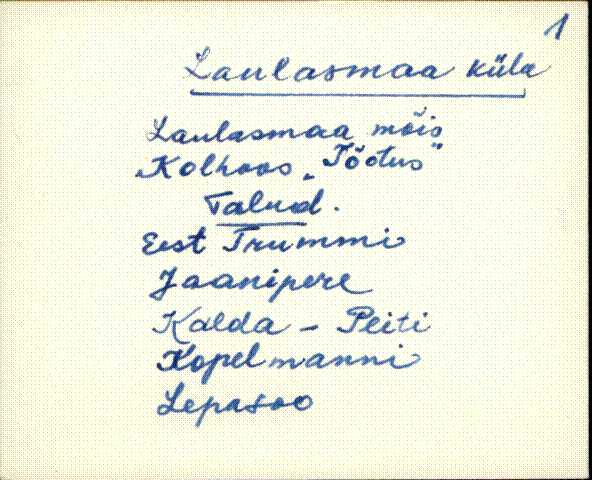 1
Laulasmaa küla
Laulasmaa mõis
Kolhoos „Tõotus"
Talud.
Eest Trummi
Jaanipere
Kalda - Peiti
Kopelmanni
Lepasoo